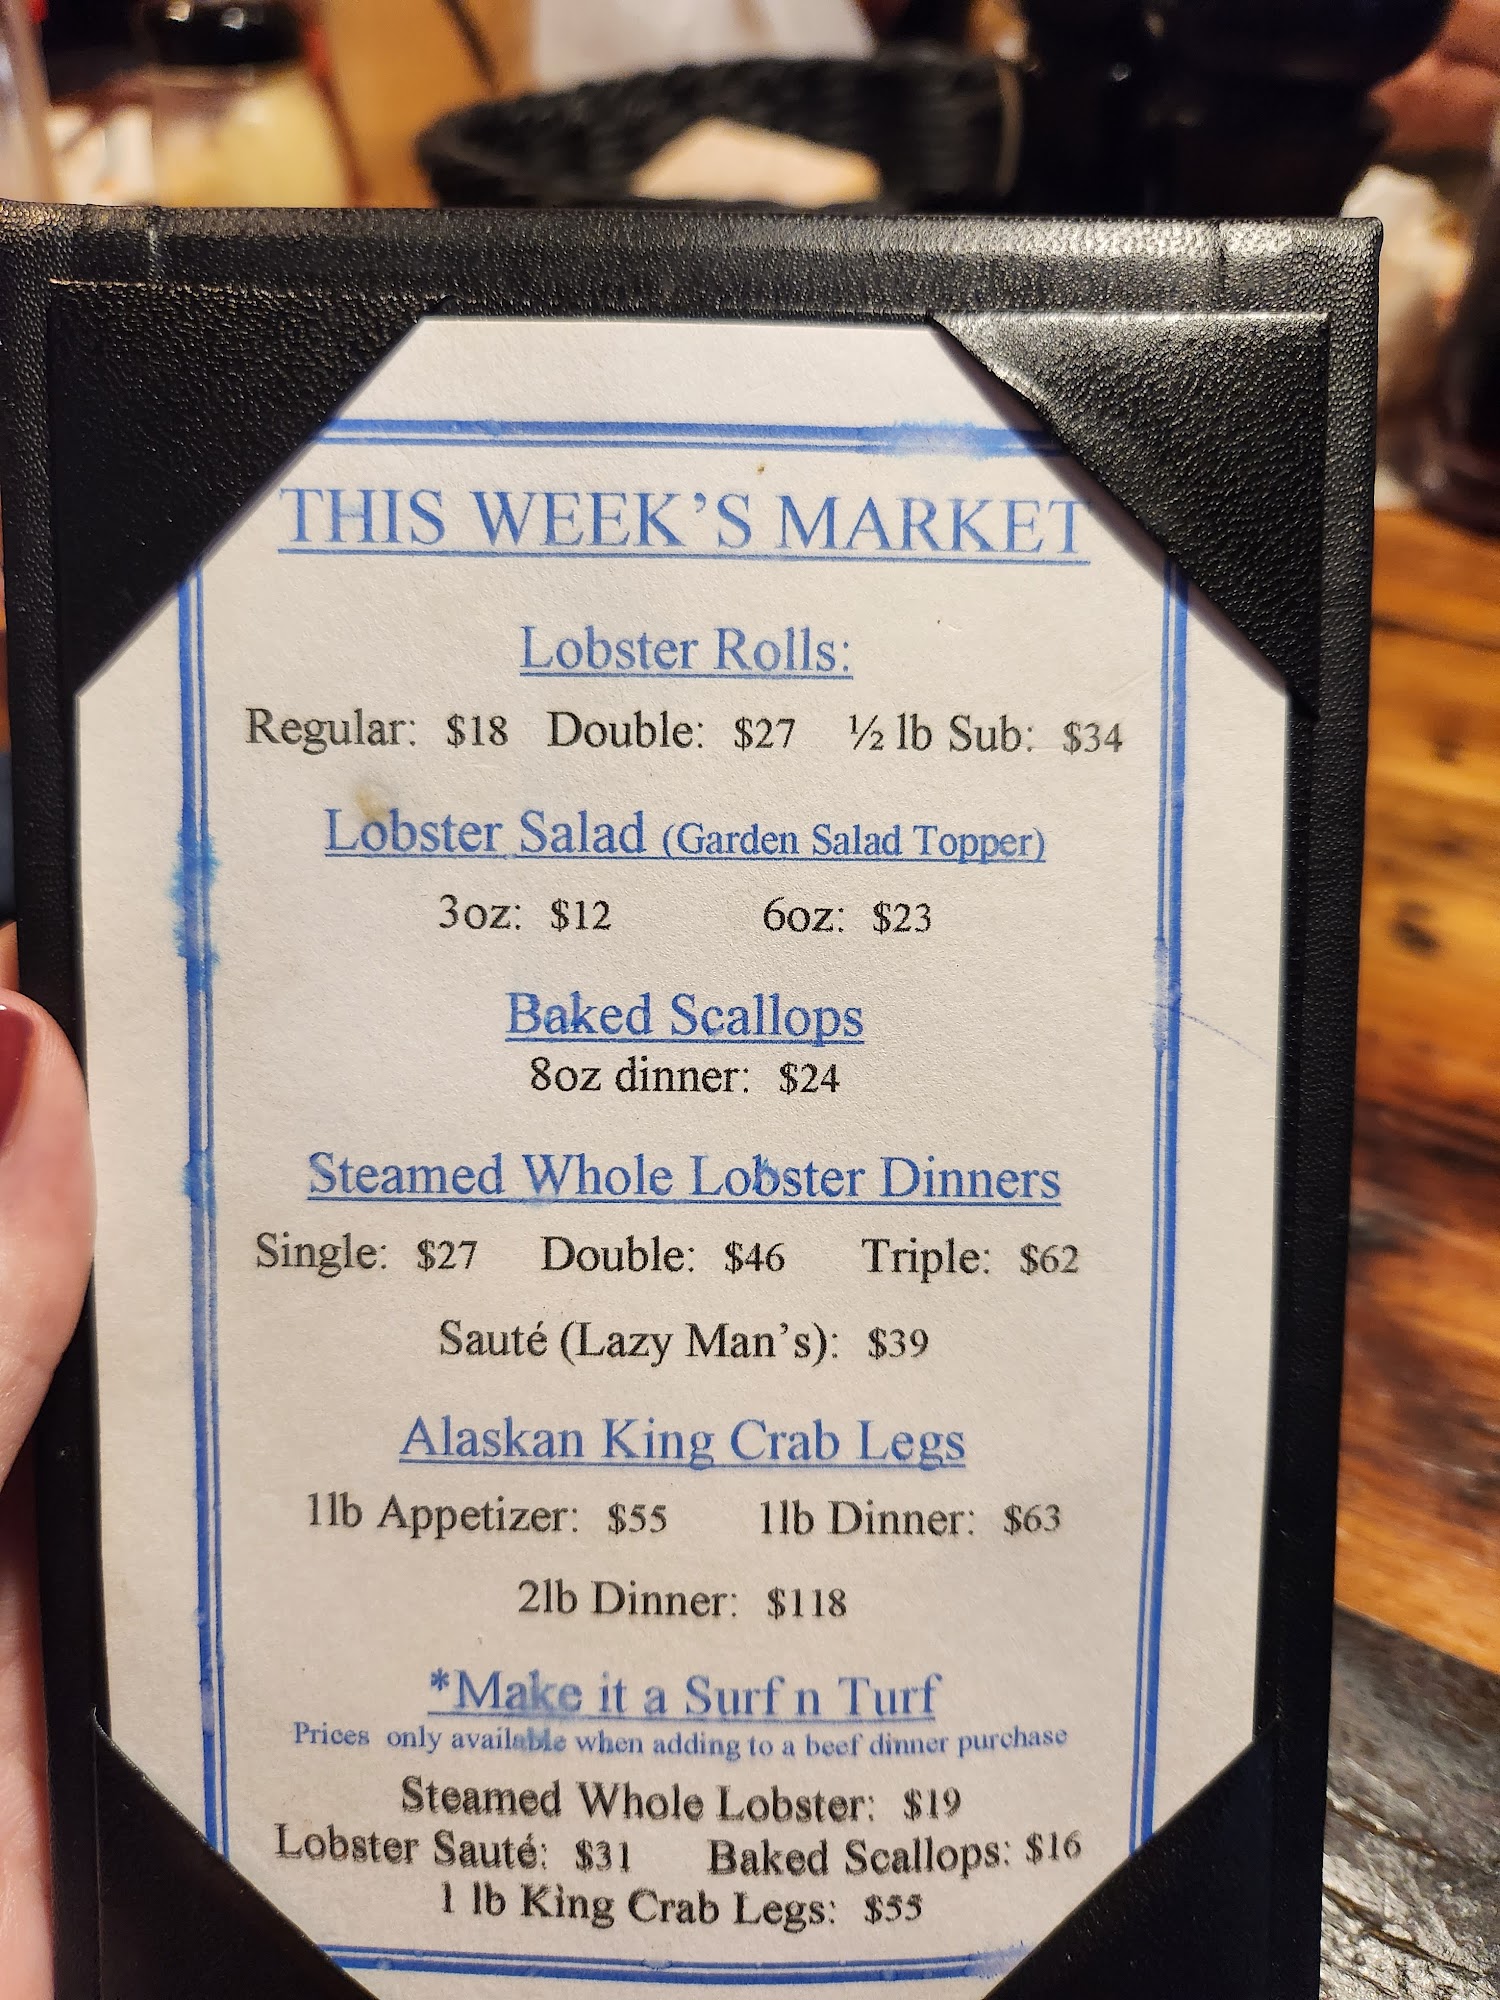 THIS WEEK'S MARKET
Lobster Rolls:
Regular: $18 Double: $27 ½ lb Sub: $34
Lobster Salad (Garden Salad Topper)
3oz: $12 6oz: $23
Baked Scallops
8oz dinner: $24
Steamed Whole Lobster Dinners
Single: $27 Double: $46 Triple: $62
Sauté (Lazy Man's): $39
Alaskan King Crab Legs
1lb Appetizer: $55 1lb Dinner: $63
2lb Dinner: $118
*Make it a Surf n Turf
Prices only available when adding to a beef dinner purchase
Steamed Whole Lobster: $19
Lobster Sauté: $31 Baked Scallops: $16
1 lb King Crab Legs: $55